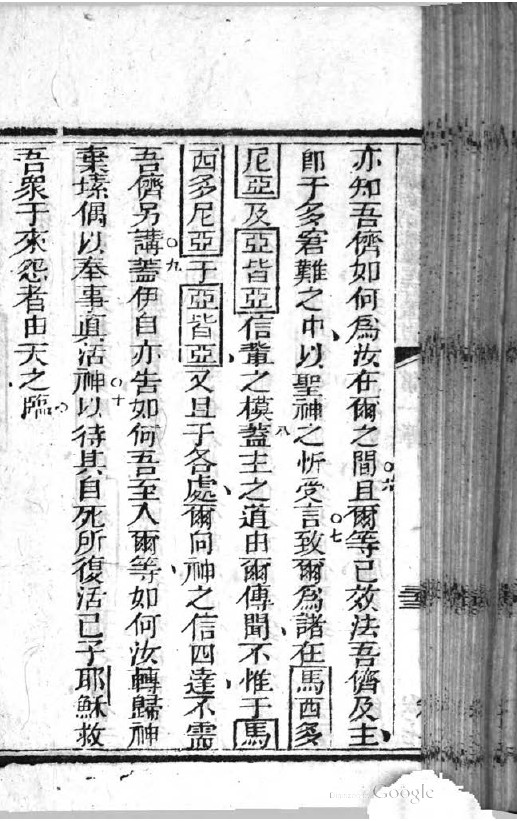 亦知吾儕如何爲汝在爾之間○六且爾等已效法吾儕及主、
卽于多窘難之中、以聖神之忻受言○七致爾爲諸在馬西多
尼亞及亞皆亞信輩、之模八蓋主之道由爾傳聞、不惟于馬
西多尼亞于亞皆亞又且于各處、爾向神之信四達、不需
吾儕另講○九蓋伊自亦告如何吾至入爾等、如何汝轉歸神
棄塐偶以奉事真活神○十以待其自死所復活已子耶穌救
吾衆于來怨者由天之臨。
Google